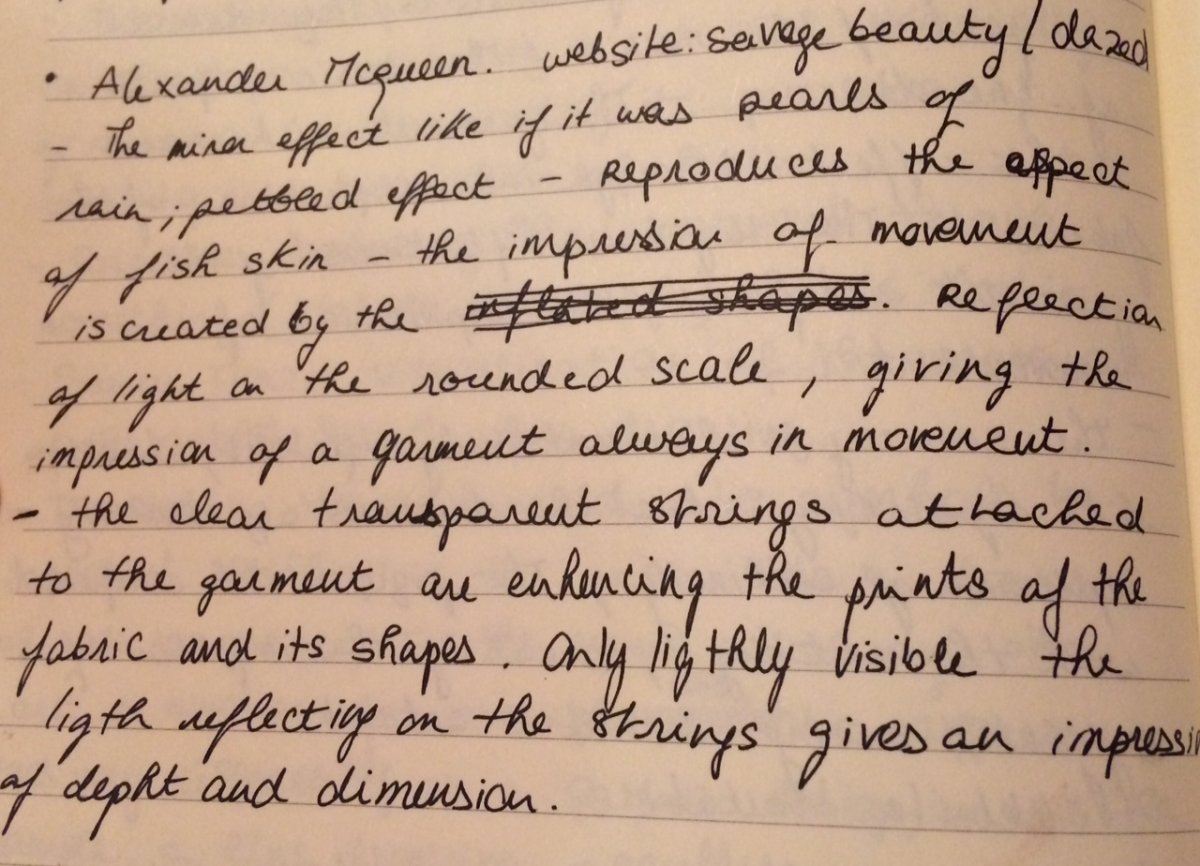 • Alexander Mcqueen. website: savage beauty / dazed
- The miror effect like if it was pearls of
rain; pebbled effect - Reproduces the effect
of fish skin - the impression of movement
is created by the inflated shapes. Reflection
of light on the rounded scale, giving the
impression of a garment always in movement.
- the clear transparent strings attached
to the garment are enhencing the prints of the
fabric and its shapes. Only ligthly visible the
ligth reflecting on the strings gives an impressi
of depht and dimension.